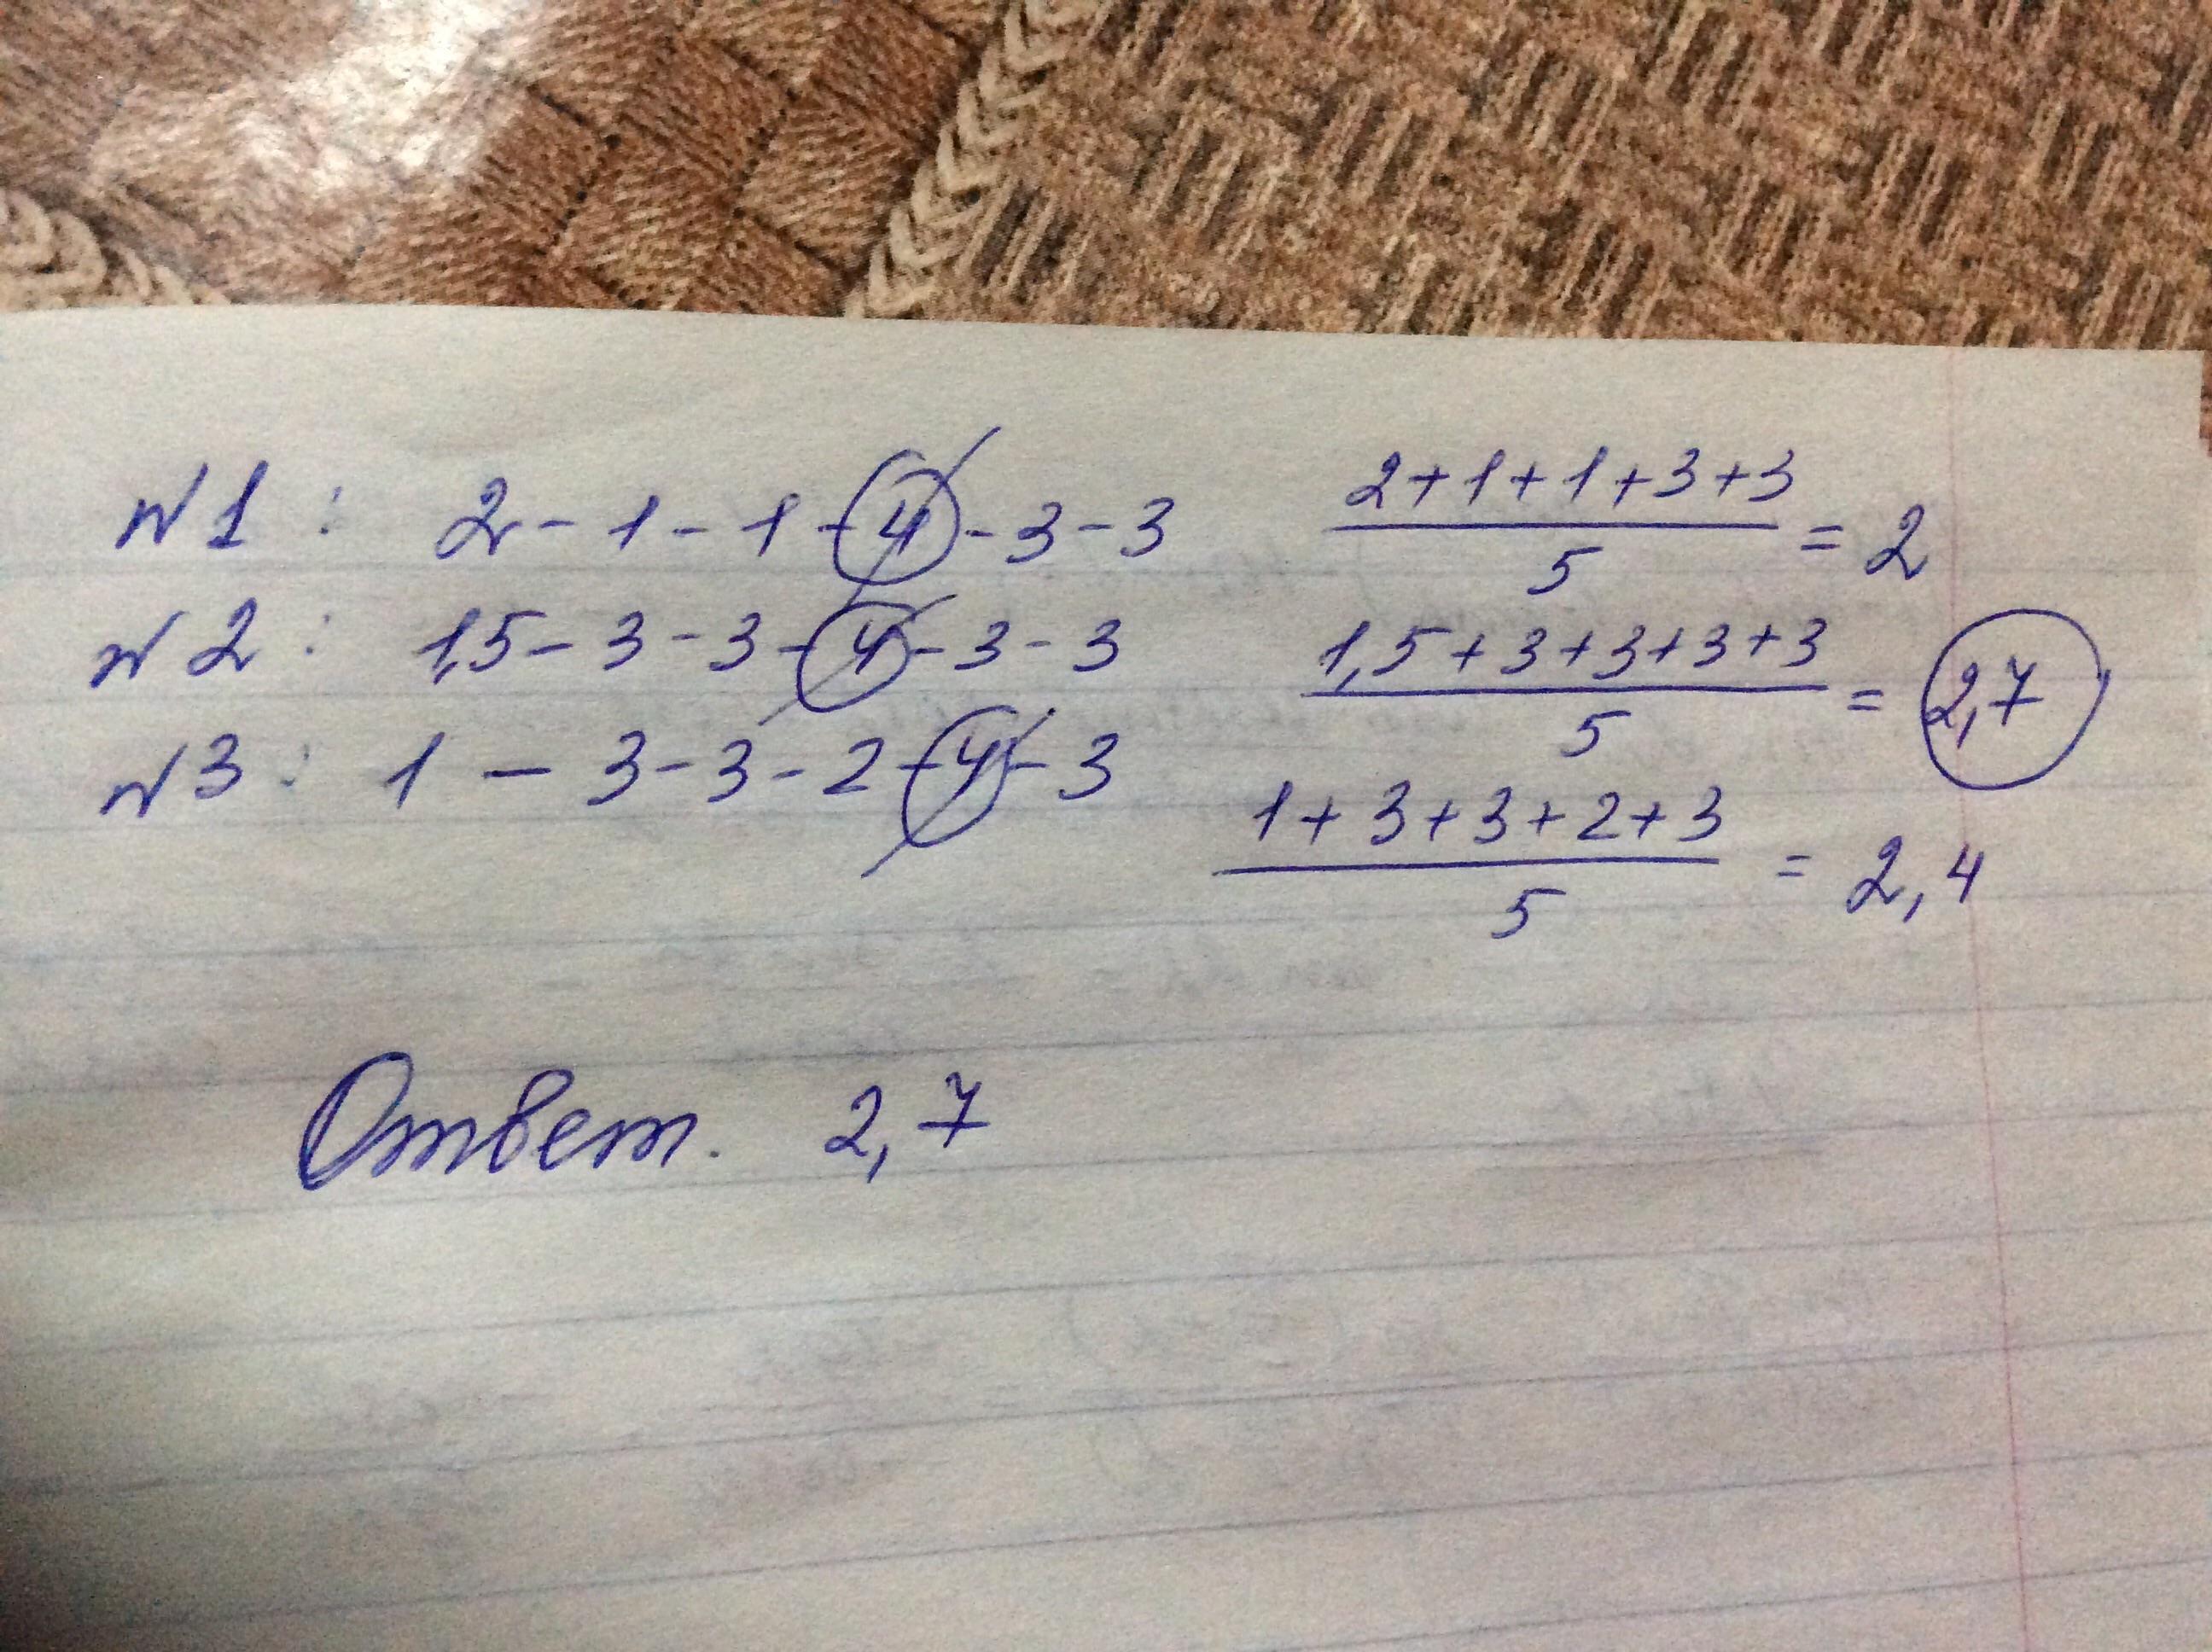 №1: 2 - 1 - 1 - 4 - 3 - 3    (2+1+1+3+3)/5 = 2
№2: 1,5 - 3 - 3 - 4 - 3 - 3    (1,5+3+3+3+3)/5 = 2,7
№3: 1 - 3 - 3 - 2 - 4 - 3    (1+3+3+2+3)/5 = 2,4
Ответ. 2,7